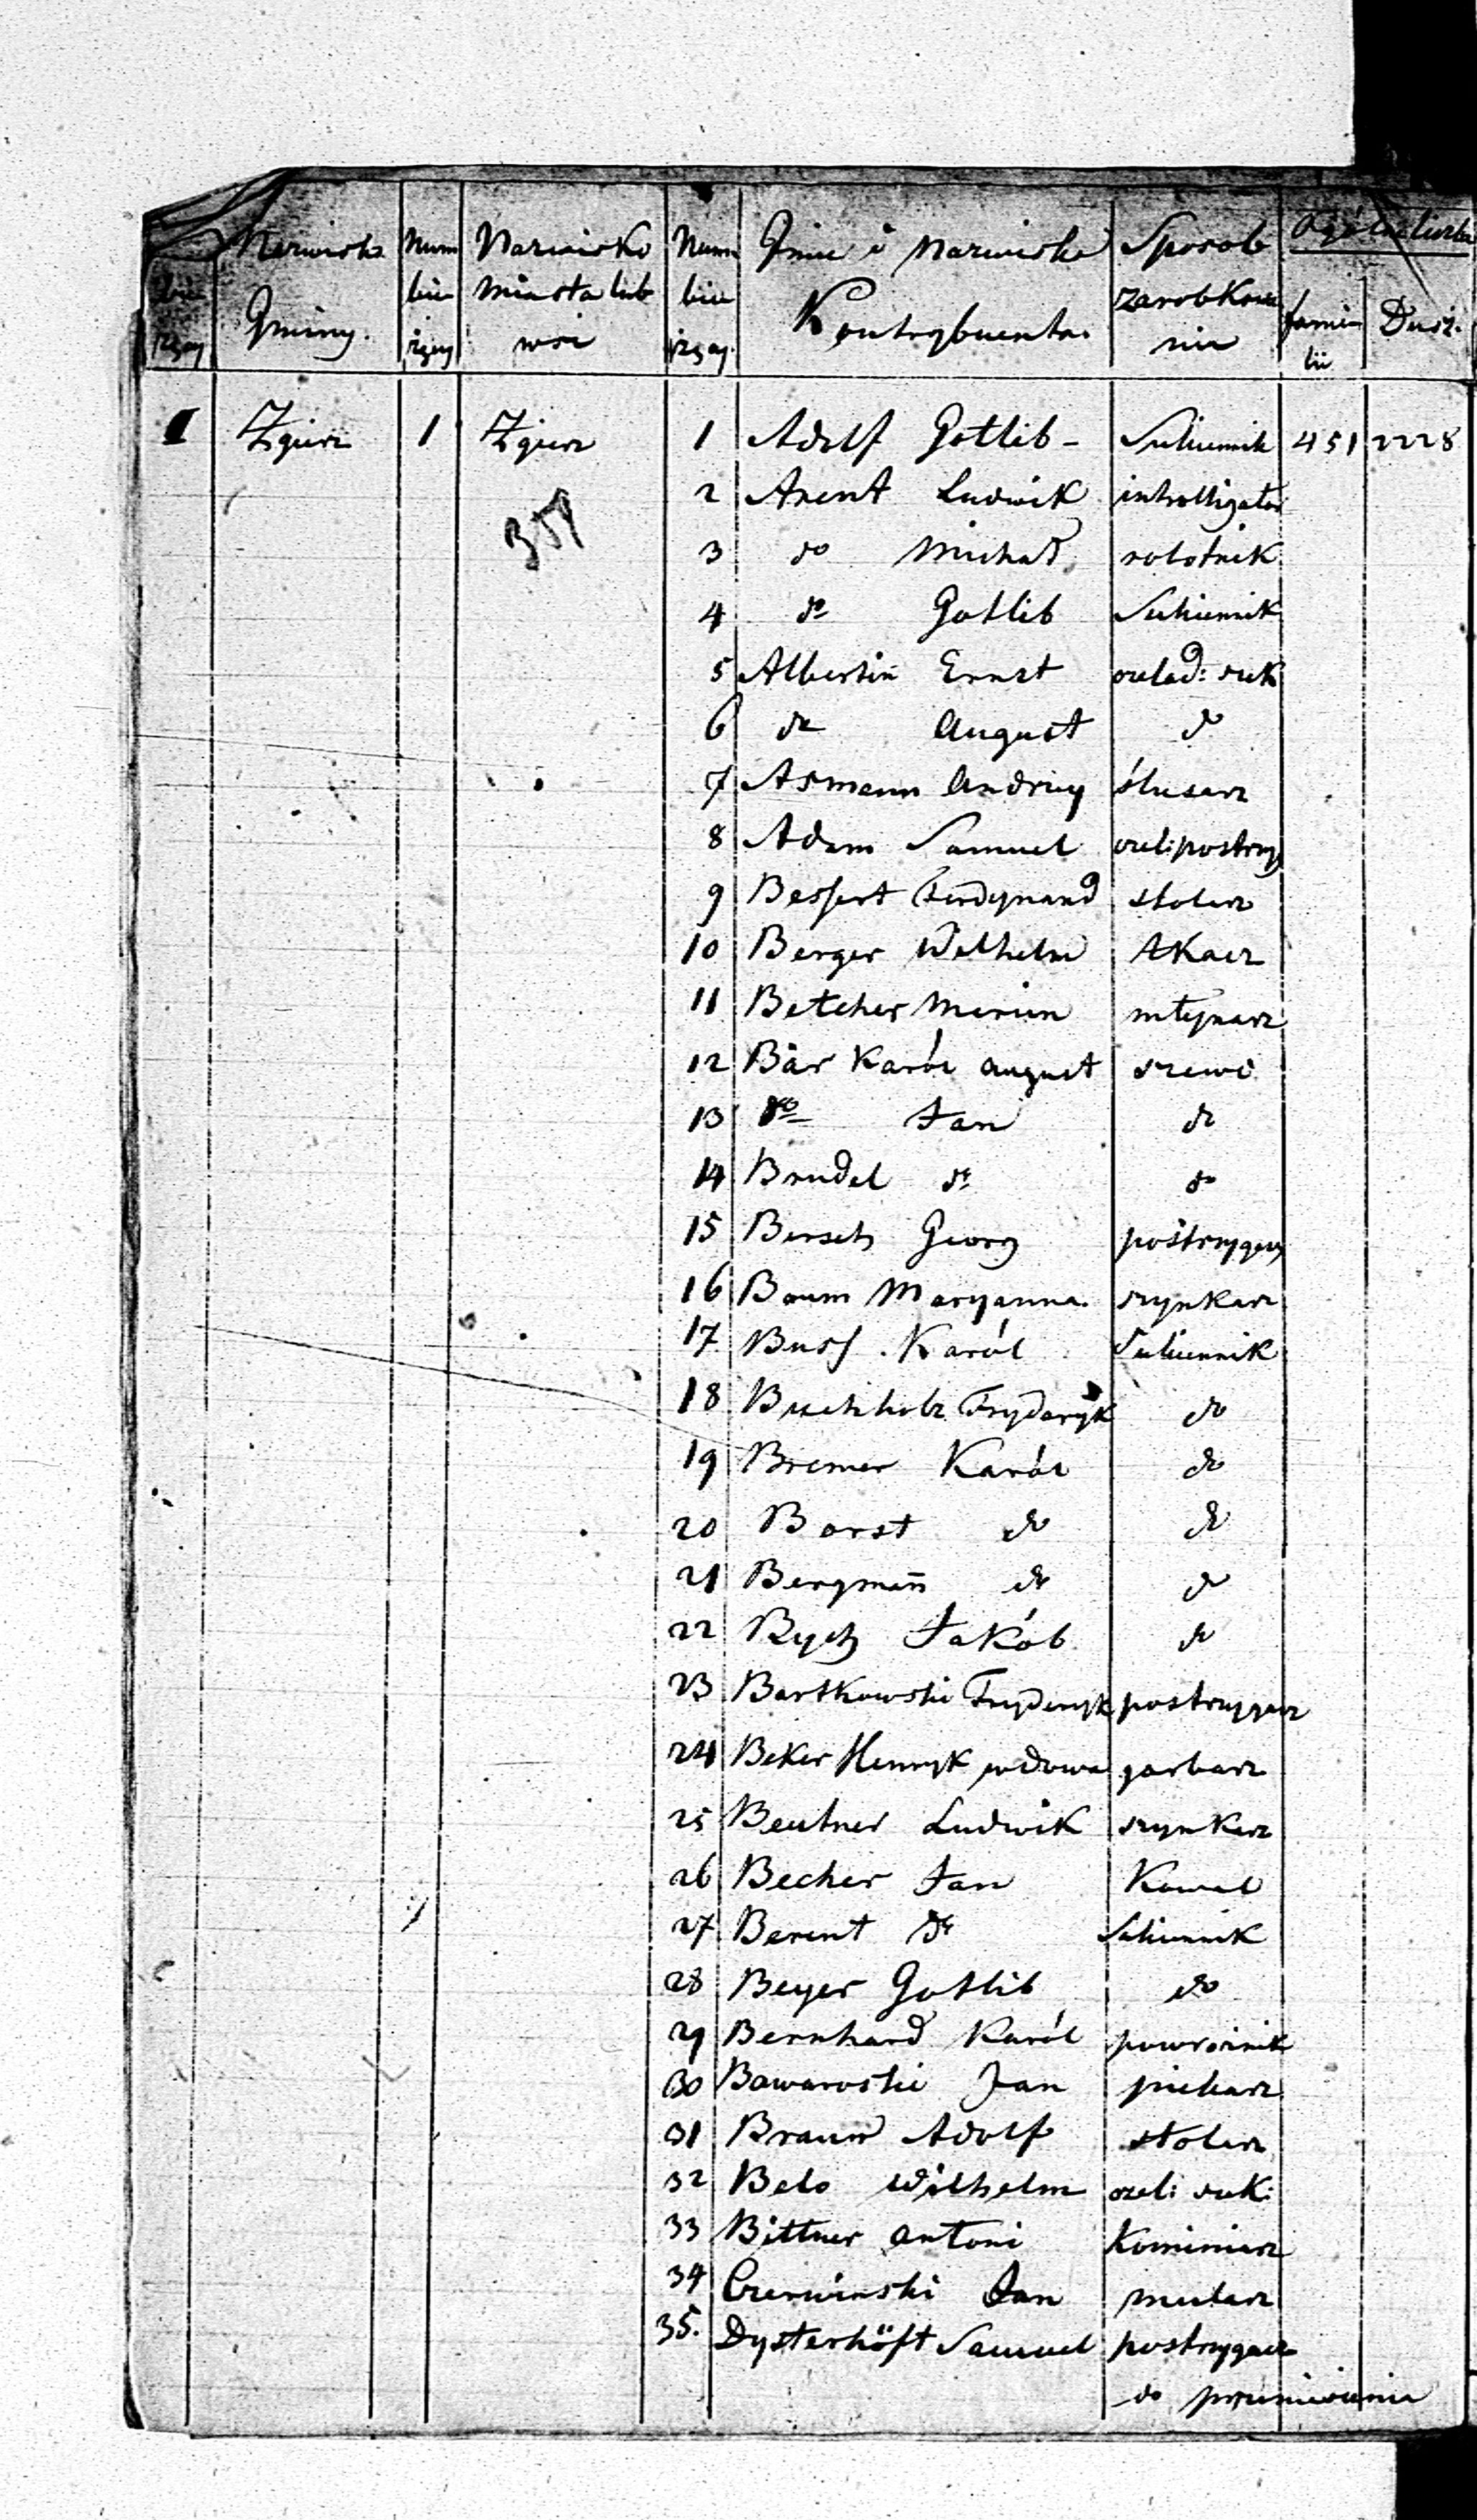 Nazwisko Gminy.
Num bie żący
Nazwisko miasta lub wsi
Num bie żący
Imie i Nazwisko Kontrybuenta.
Sposob zarobkowa nia
Ogólna liczba
famie lii
Dusz.
1 Zgierz 1 Zgierz 1 Adolf Gotlib - Sukiennik 451 2228
2 Arent Ludwik introlligator
3 do Michał robotnik
4 do Gotlib Sukiennik
5 Albertin Ernst czelad: suk
6 do August do
7 Asmann Andrzey ślusarz
8 Adam Samuel czel: postrzy
9 Bessert Ferdynand stolarz
10 Berger Wilhelm tkacz
11 Betcher Marcin młynarz
12 Bär Karól August szewc
13 do Jan do
14 Brudel do do
15 Bersch Georg postrzygacz
16 Baum Maryanna. szynkarz
17 Buss. Karól Sukiennik
18 Buchholz Fryderyk do
19 Bremer Karól do
20 Borst do do
21 Bergmañ do do
22 Rych Jakób do
23 Bartkowski Fryderyk postrzygacz
24 Beker Henryk wdowa garbarz
25 Beutner Ludwik szynkarz
26 Becher Jan Kowal
27 Berent do Sukiennik
28 Beyer Gotlib do
29 Bernhard Karól powroźnik
30 Bawaroski Jan piekarz
31 Braun Adolf stolarz
32 Belo Wilhelm czel: suk:
33 Bittner Antoni Kominiarz
34 Czerwinski Jan mularz
35. Dysterhöft Samuel postrzygacz
do przeniesienia